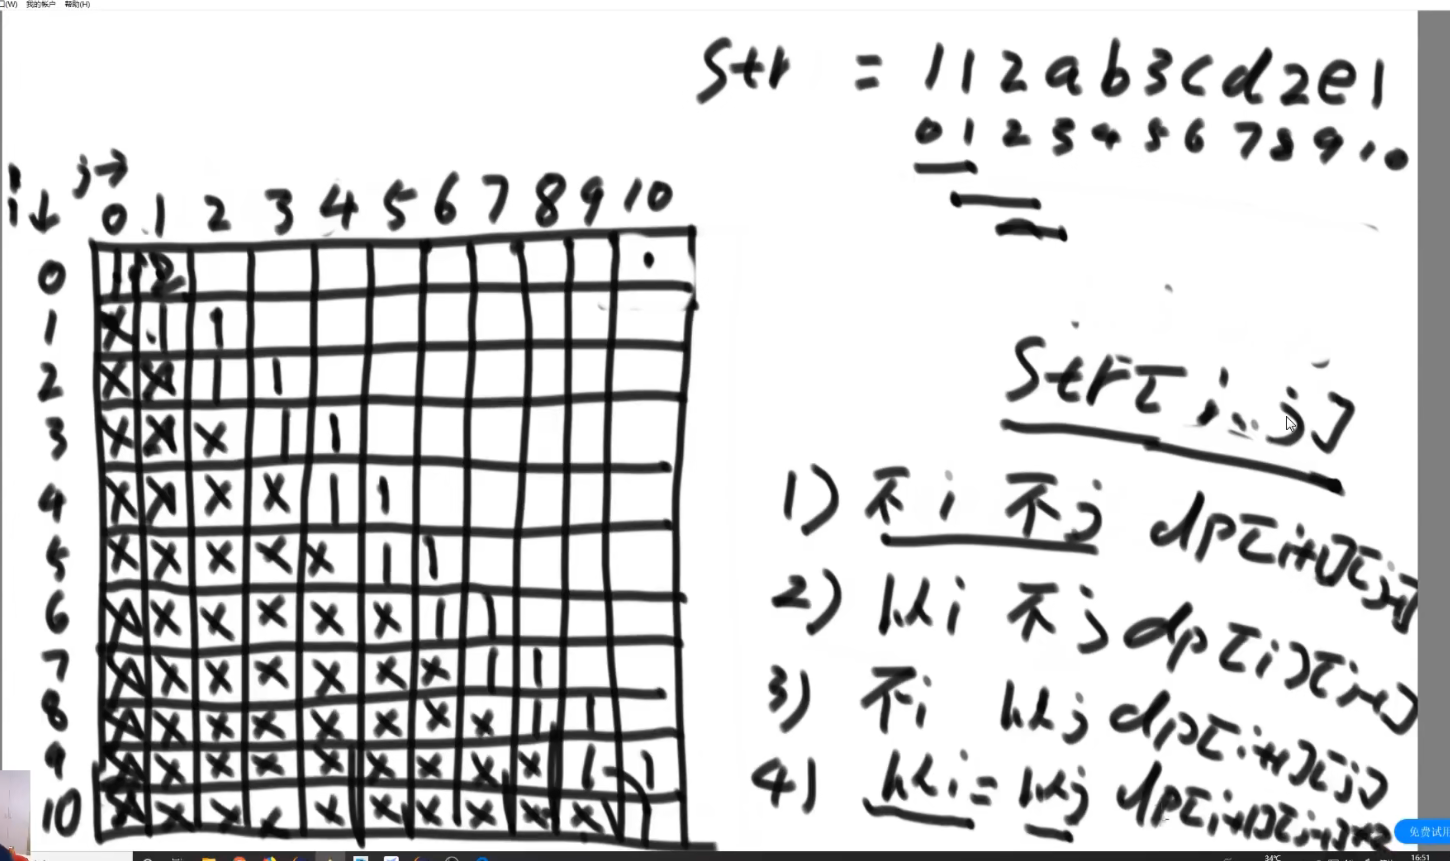 口(W) 我的帐户 帮助(H)
Str = 112ab3cd2e1
0 1 2 3 4 5 6 7 8 9 10
j→
i↓ 0 1 2 3 4 5 6 7 8 9 10
0 1 2
1 X 1 1
2 X X 1 1
3 X X X 1 1
4 X X X X 1 1
5 X X X X X 1 1
6 X X X X X X 1 1
7 X X X X X X X 1 1
8 X X X X X X X X 1 1
9 X X X X X X X X X 1 1
10 X X X X X X X X X X 1
Str[i..j]
1) 不i 不j dp[i+1][j-1]
2) 以i 不j dp[i][j-1]
3) 不i 以j dp[i+1][j]
4) 以i = 以j dp[i+1][j-1]+2
免费试用
34℃ 16:51